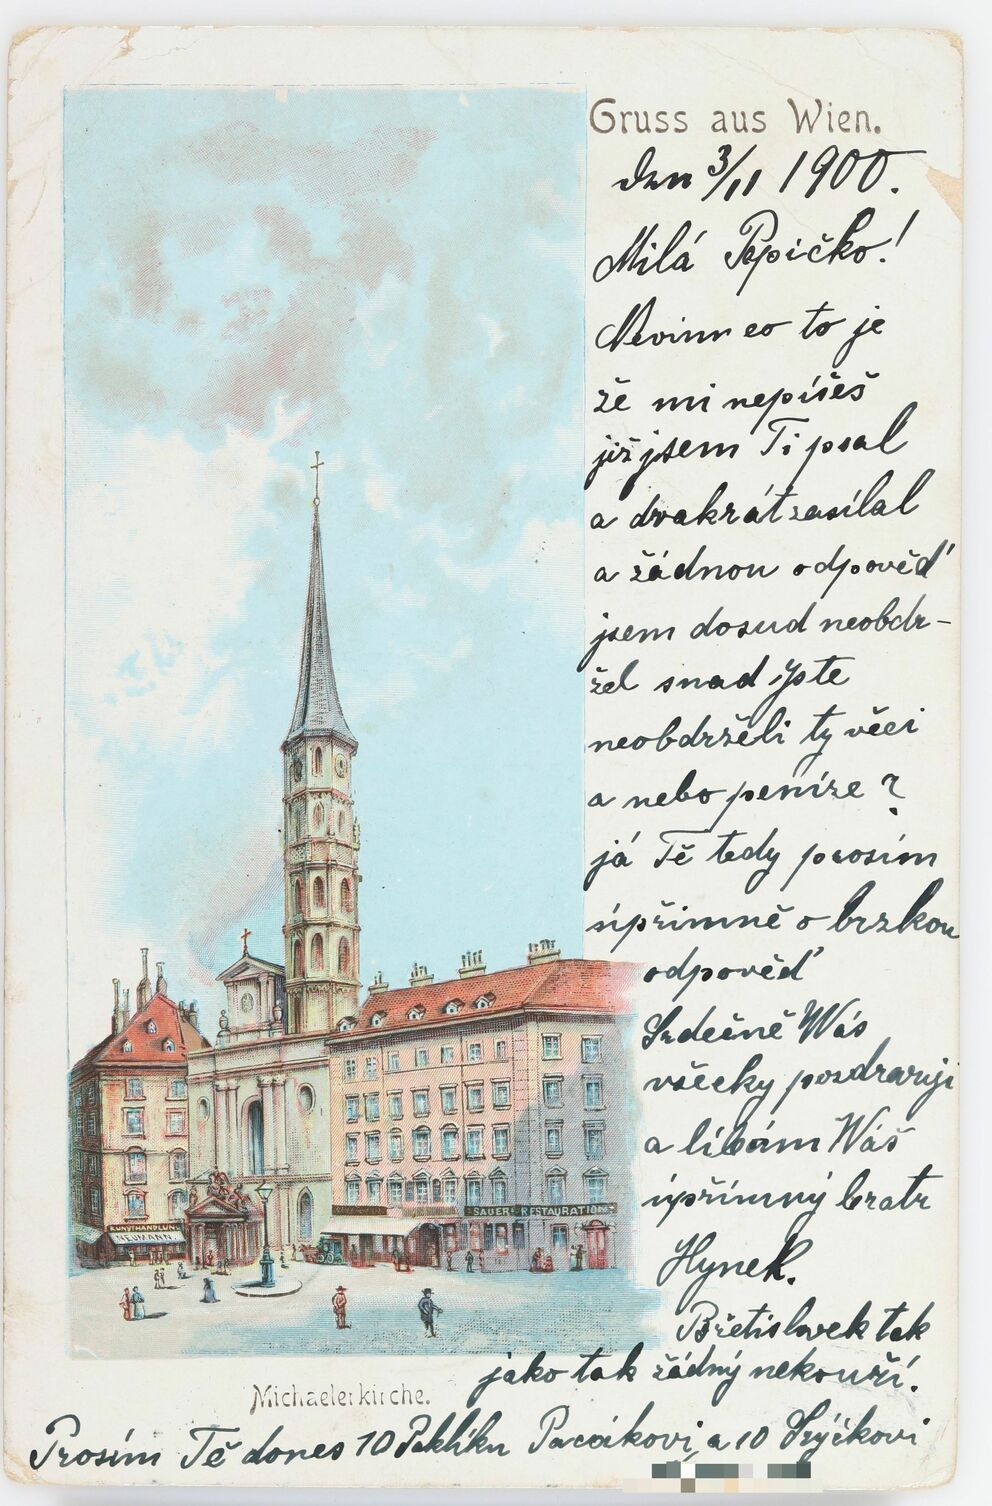 Gruss aus Wien.
den 3/11 1900.
Milá Pepičko!
Nevím co to je
že mi nepíšeš
již jsem Ti psal
a dvakrát zasílal
a žádnou odpověď
jsem dosud neobdr-
žel snad jste
neobdrželi ty věci
a nebo peníze?
já Tě tedy prosím
úpřimně o brzkou
odpověď
Srdečně Wás
všecky pozdravuji
a líbám Wáš
úpřímný bratr
Hynek.
Břetislavek tak
jako tak žádný nekouří.
SAUER RESTAURATION
KUNSTHANDLUNG
NEUMANN
Michaelerkirche.
Prosím Tě dones 10 a 10